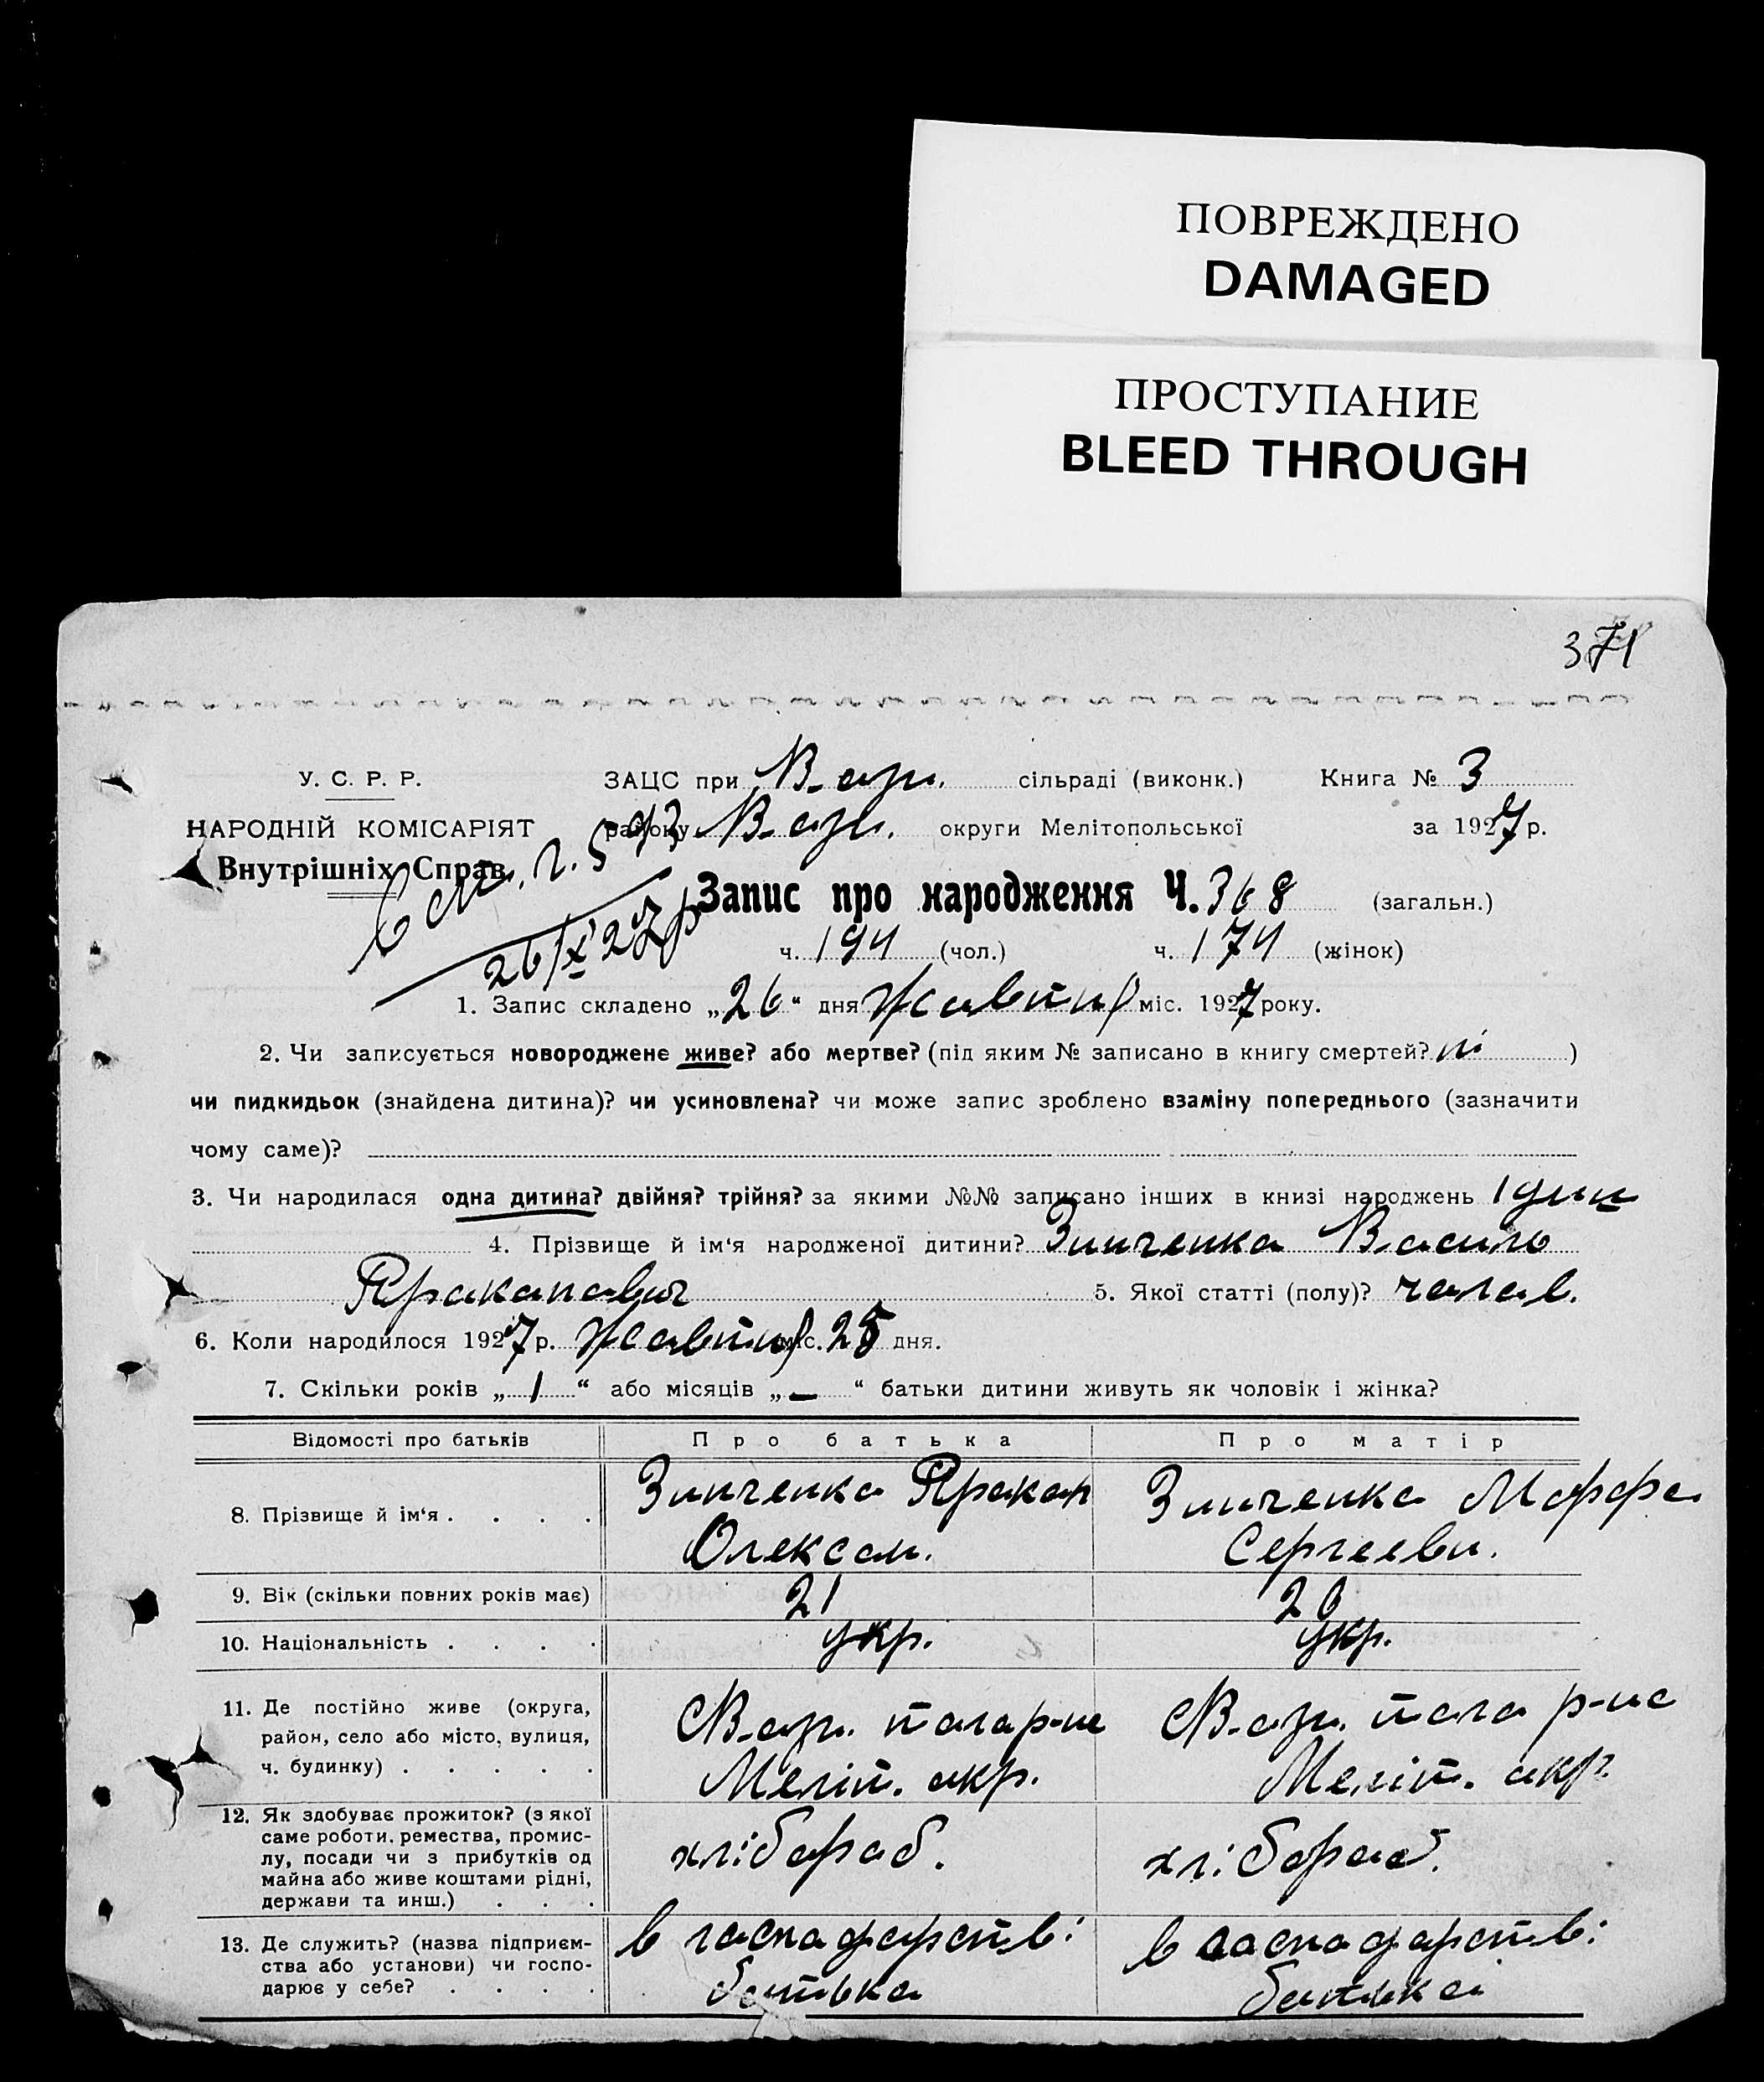 ПОВРЕЖДЕНО
DAMAGED
ПРОСТУПАНИЕ
BLEED THROUGH
371
У. С. Р. Р.
НАРОДНІЙ КОМІСАРІЯТ
Внутрішніх Справ
ЗАЦС при сільраді (виконк.) Книга № 3
району округи Мелітопольської за 1927 р.
26/X 27р
Запис про народження Ч. 368 (загальн.)
ч. 194 (чол.) ч. 174 (жінок)
1. Запис складено „26“ дня Жовтня міс. 1927 року.
2. Чи записується новороджене живе? або мертве? (під яким № записано в книгу смертей? ні )
чи пидкидьок (знайдена дитина)? чи усиновлена? чи може запис зроблено взаміну попереднього (зазначити
чому саме)?
3. Чи народилася одна дитина? двійня? трійня? за якими №№ записано інших в книзі народжень 1
4. Прізвище й ім‘я народженої дитини? Зинченко Василь
Проконович 5. Якої статті (полу)? чолов.
6. Коли народилося 1927 р. Жовтня міс. 25 дня.
7. Скільки років „ 1 “ або місяців „ — “ батьки дитини живуть як чоловік і жінка?
Відомості про батьків Про батька Про матір
8. Прізвище й ім‘я . . . . Зинченко Прокоп Олексан. Зинченко Марфа Сергеевн.
9. Вік (скільки повних років має) 21 20
10. Національність . . . . укр. укр.
11. Де постійно живе (округа,
район, село або місто, вулиця,
ч. будинку) . . . . .
Меліт. окр. Меліт. окр.
12. Як здобуває прожиток? (з якої
саме роботи, ремества, промис-
лу, посади чи з прибутків од
майна або живе коштами рідні,
держави та инш.) . . .
хлібороб. хлібороб.
13. Де служить? (назва підприєм-
ства або установи) чи госпо-
дарює у себе? . . . .
в господарстві батька в господарстві батька